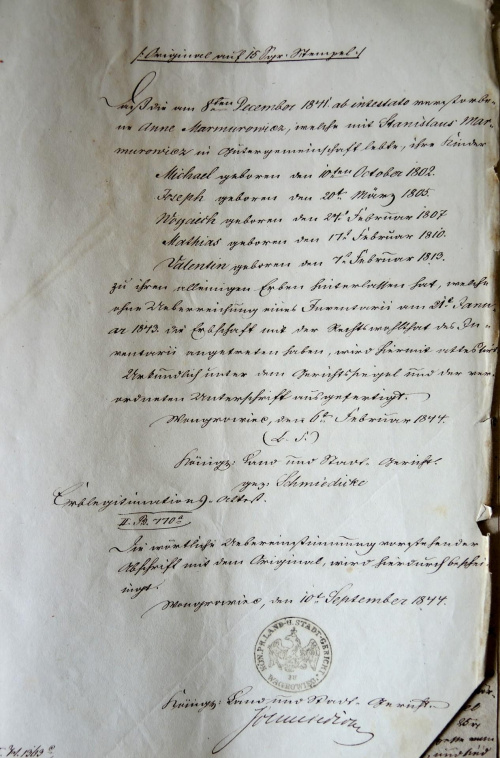 /: Original auf 15 Sgr. Stempel :/
Daß die am 8ten December 1841. ab intestato verstorbe-
ne Anne Marmurowicz, welche mit Stanislaus Mar-
murowicz in Gütergemeinschaft lebte, ihre Kinder
Michael geboren den 10ten October 1802.
Joseph geboren den 20t. März 1805.
Woyciech geboren den 24t. Februar 1807
Mathias geboren den 17t. Februar 1810.
Valentin geboren den 7t. Februar 1813.
zu ihren alleinigen Erben hinterlassen hat, welche
ohne Ueberreichung eines Inventarii am 21t. Janu-
ar 1843. die Erbschaft mit der Rechtswohlthat des In-
ventarii angetreten haben, wird hiermit attestirt
Urkundlich unter dem Gerichtssiegel und der ver-
ordneten Unterschrift ausgefertigt.
Wongrowiec, den 6t. Februar 1844.
(L. S.)
Königl: Land und Stadt-Gericht.
gez: Schmiedicke
Erblegitimations-Attest.
II. Pb. 770a
Die wörtliche Uebereinstimmung vorstehender
Abschrift mit dem Original, wird hierdurch beschei-
nigt.
Wongrowiec, den 10t. September 1844.
KÖN. PR. LAND- U. STADT-GERICHT
ZU
WONGROWIEC
Königl: Land und Stadt-Gericht.